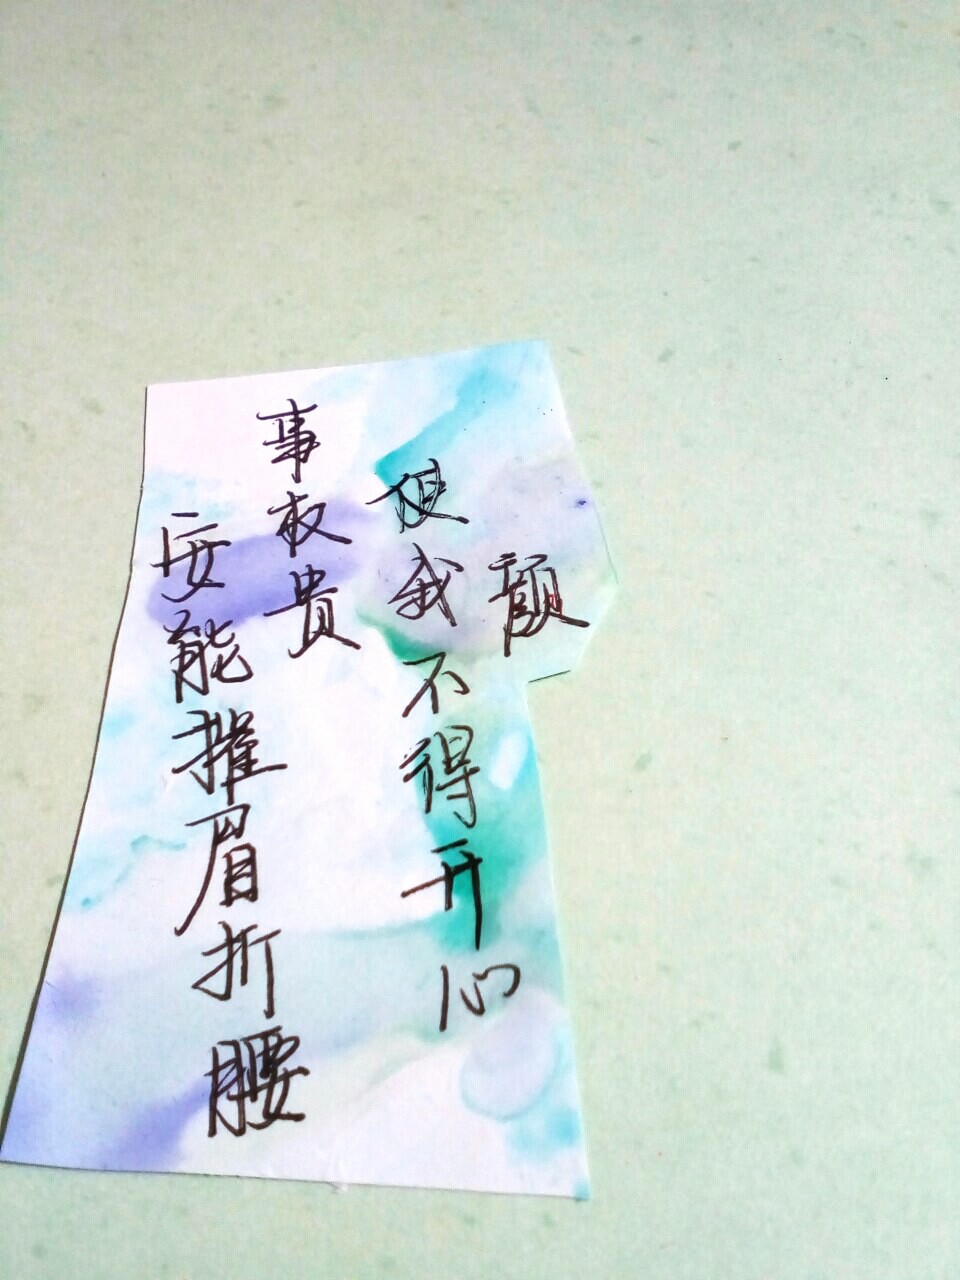 安能摧眉折腰
事权贵
使我不得开心
颜